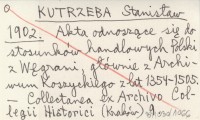 KUTRZEBA Stanisław
1902. Akta odnoszące się do
stosunków handlowych Polski
z Węgrami, głównie z Archi-
wum Koszyckiego z lat 1354-1505.
— Collectanea ex Archivo Col-
legii Historici (Kraków)